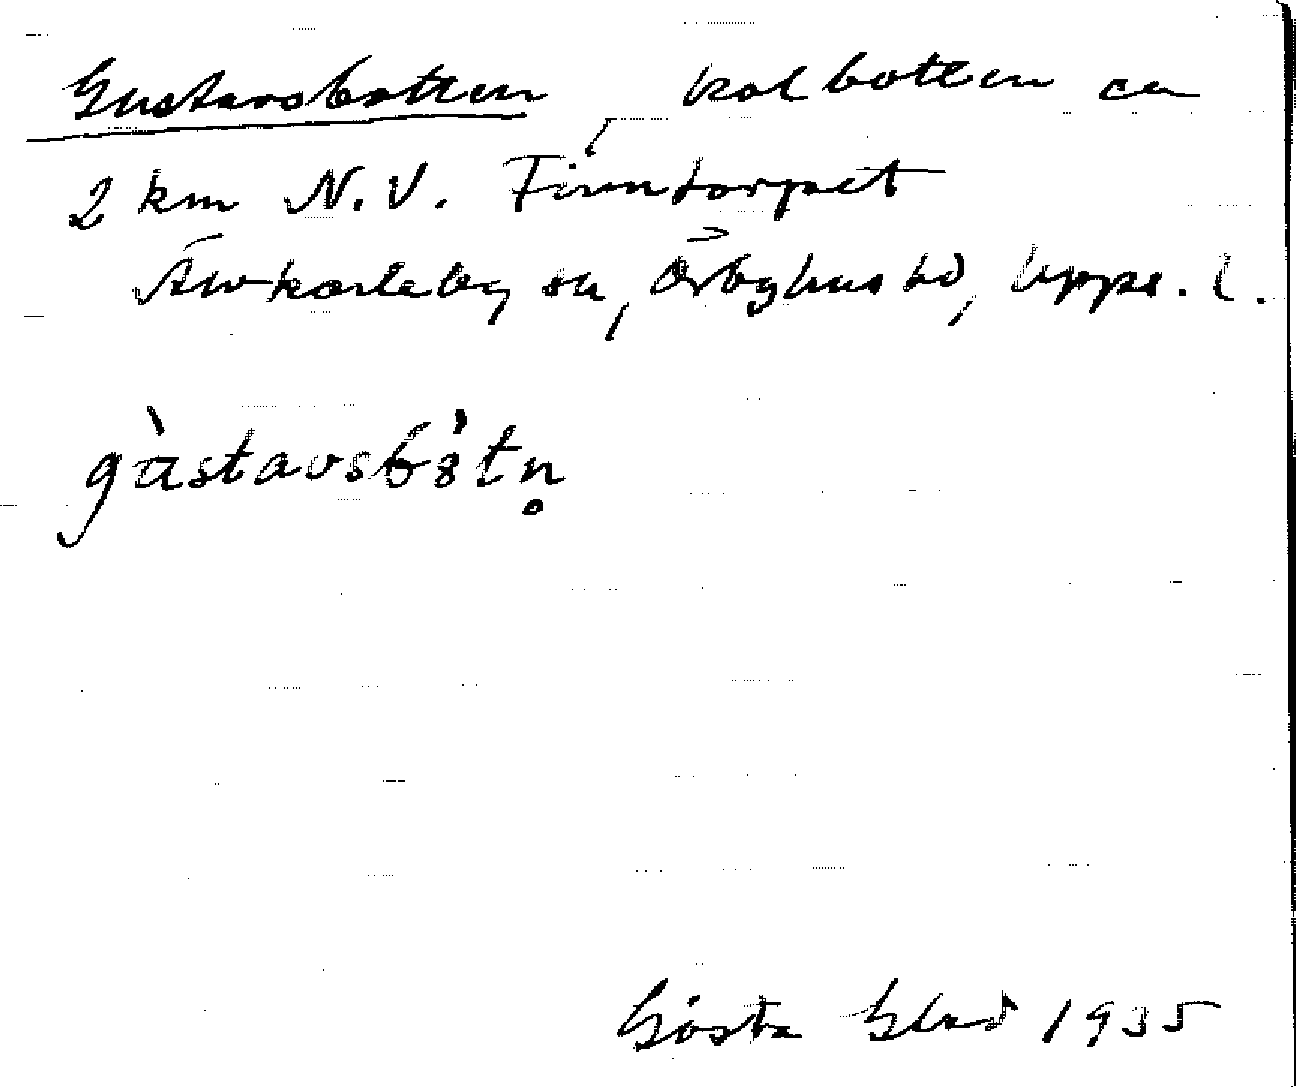 Gustavsbotten kolbotten ca
2 km N.V. Finntorpet
Älvkarleby sn, Örbyhus hd, Upps. l.
gὰstavsbòtn̥
Gösta Glad 1935